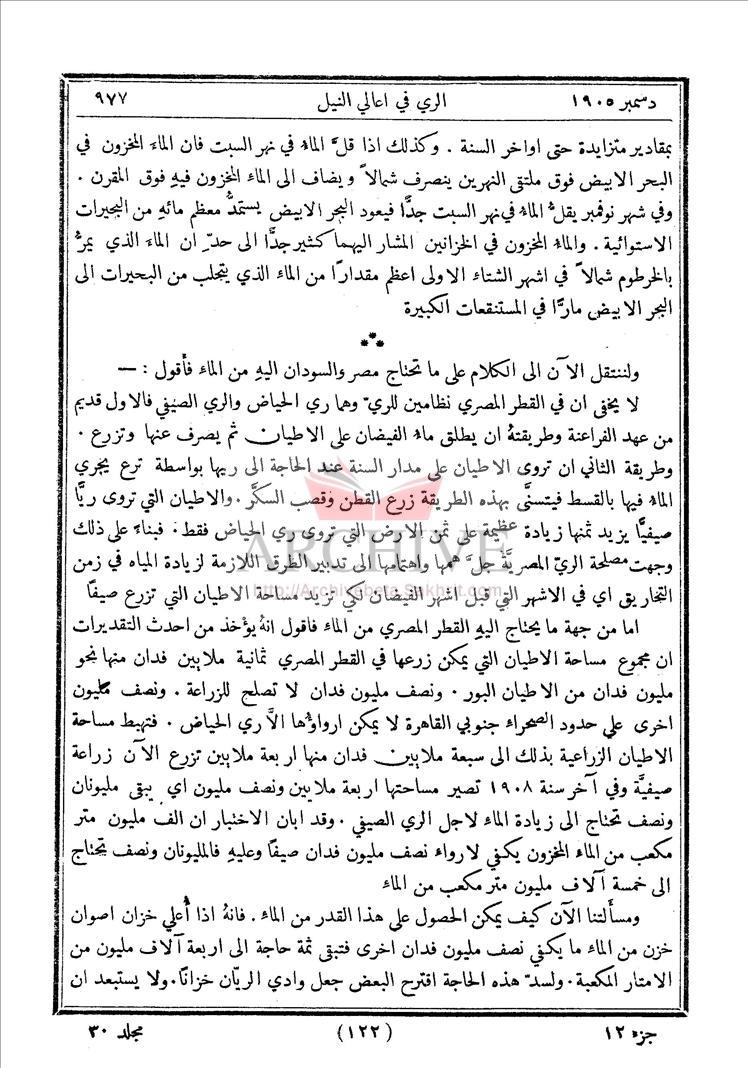 دسمبر ١٩٠٥ الري في اعالي النيل ٩٧٧
بمقادير متزايدة حتى اواخر السنة . وكذلك اذا قلَّ الماءُ في نهر السبت فان الماء المخزون في
البحر الابيض فوق ملتقى النهرين ينصرف شمالاً ويضاف الى الماء المخزون فيهِ فوق المقرن .
وفي شهر نوفمبر يقلُّ الماءُ في نهر السبت جدًّا فيعود البحر الابيض يستمدُّ معظم مائهِ من البحيرات
الاستوائية . والماءُ المخزون في الخزانين المشار اليهما كثير جدًّا الى حدّ ان الماء الذي يمرُّ
بالخرطوم شمالاً في اشهر الشتاء الاولى اعظم مقدارًا من الماء الذي يتجلب من البحيرات الى
البحر الابيض مارًّا في المستنقعات الكبيرة
***
ولننتقل الآن الى الكلام على ما تحتاج مصر والسودان اليهِ من الماء فأقول : —
لا يخفى ان في القطر المصري نظامين للريّ وهما ري الحياض والري الصيفي فالاول قديم
من عهد الفراعنة وطريقتهُ ان يطلق ماءُ الفيضان على الاطيان ثم يصرف عنها وتزرع .
وطريقة الثاني ان تروى الاطيان على مدار السنة عند الحاجة الى ريها بواسطة ترع يجري
الماءُ فيها بالقسط فيتسنَّى بهذه الطريقة زرع القطن وقصب السكَّر . والاطيان التي تروى ريًّا
صيفيًّا يزيد ثمنها زيادة عظيمة على ثمن الارض التي تروى ري الحياض فقط . فبناءً على ذلك
وجهت مصلحة الريّ المصريَّة جلَّ همها واهتمامها الى تدبير الطرق اللازمة لزيادة المياه في زمن
التحاريق اي في الاشهر التي قبل اشهر الفيضان لكي تزيد مساحة الاطيان التي تزرع صيفًا
اما من جهة ما يحتاج اليهِ القطر المصري من الماء فاقول انهُ يؤخذ من احدث التقديرات
ان مجموع مساحة الاطيان التي يمكن زرعها في القطر المصري ثمانية ملايين فدان منها نحو
مليون فدان من الاطيان البور . ونصف مليون فدان لا تصلح للزراعة . ونصف مليون
اخرى على حدود الصحراء جنوبي القاهرة لا يمكن ارواؤها الاَّ ري الحياض . فتهبط مساحة
الاطيان الزراعية بذلك الى سبعة ملايين فدان منها اربعة ملايين تزرع الآن زراعة
صيفيَّة وفي آخر سنة ١٩٠٨ تصير مساحتها اربعة ملايين ونصف مليون اي يبقى مليونان
ونصف تحتاج الى زيادة الماء لاجل الري الصيفي . وقد ابان الاختبار ان الف مليون متر
مكعب من الماء المخزون يكفي لارواء نصف مليون فدان صيفًا وعليهِ فالمليونان ونصف تحتاج
الى خمسة آلاف مليون متر مكعب من الماء
ومسألتنا الآن كيف يمكن الحصول على هذا القدر من الماء . فانهُ اذا أُعلي خزان اصوان
خزن من الماء ما يكفي نصف مليون فدان اخرى فتبقى ثمة حاجة الى اربعة آلاف مليون من
الامتار المكعبة . ولسدّ هذه الحاجة اقترح البعض جعل وادي الريّان خزانًا . ولا يستبعد ان
جزء ١٢ (١٢٢) مجلد ٣٠
ARCHIVE
http://Archivebeta.Sakhrit.com